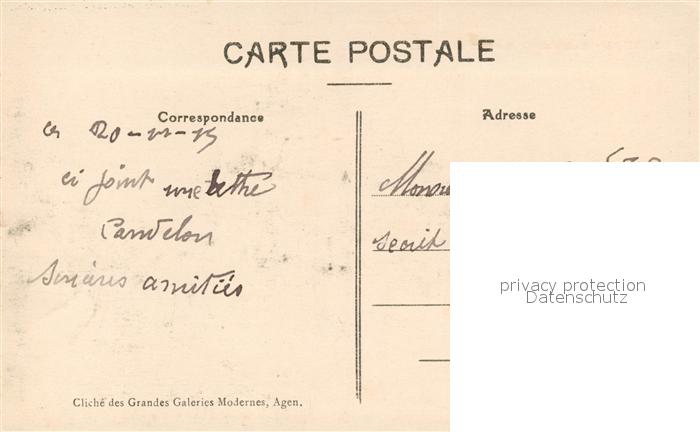 CARTE POSTALE
Correspondance
Adresse
ce 20-11-15
ci joint une lettre
Candelon
Sincères amitiés
Secrét
privacy protection
Datenschutz
Cliché des Grandes Galeries Modernes, Agen.